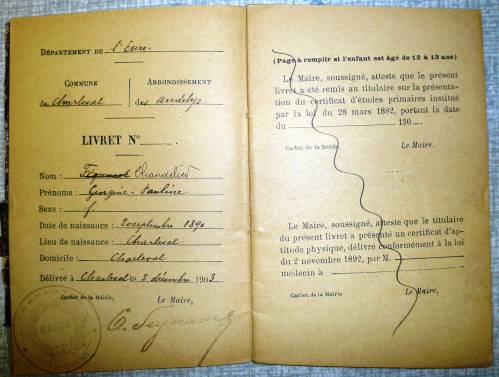 DÉPARTEMENT DE l'Eure.
COMMUNE
de Charleval
ARRONDISSEMENT
des andelys
LIVRET N°
Nom : Chandelier
Prénoms : Georgine - Pauline
Sexe : f
Date de naissance : 20 septembre 1890
Lieu de naissance : Charleval
Domicile : Charleval
Délivré à Charleval le 5 décembre 1903
Cachet de la Mairie, Le Maire,
MAIRIE
(Page à remplir si l'enfant est âgé de 12 à 13 ans)
Le Maire, soussigné, atteste que le présent
livret a été remis au titulaire sur la présenta-
tion du certificat d'études primaires institué
par la loi du 28 mars 1882, portant la date
du 190
Cachet de la Mairie Le Maire,
Le Maire, soussigné, atteste que le titulaire
du présent livret a présenté un certificat d'ap-
titude physique, délivré conformément à la loi
du 2 novembre 1892, par M.
médecin à
Cachet de la Mairie, Le Maire,